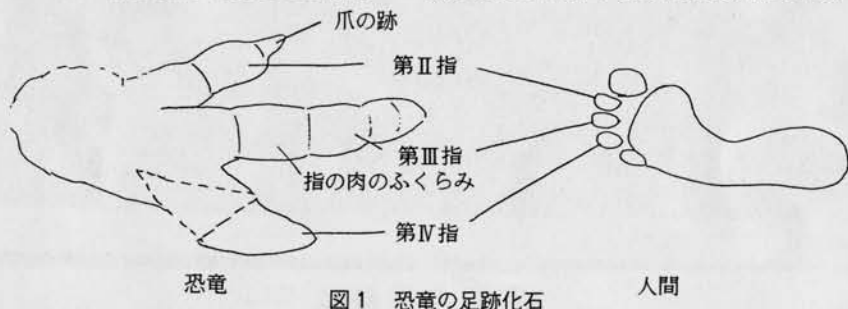 爪の跡
第Ⅱ指
第Ⅲ指
指の肉のふくらみ
第Ⅳ指
恐竜
人間
図1 恐竜の足跡化石